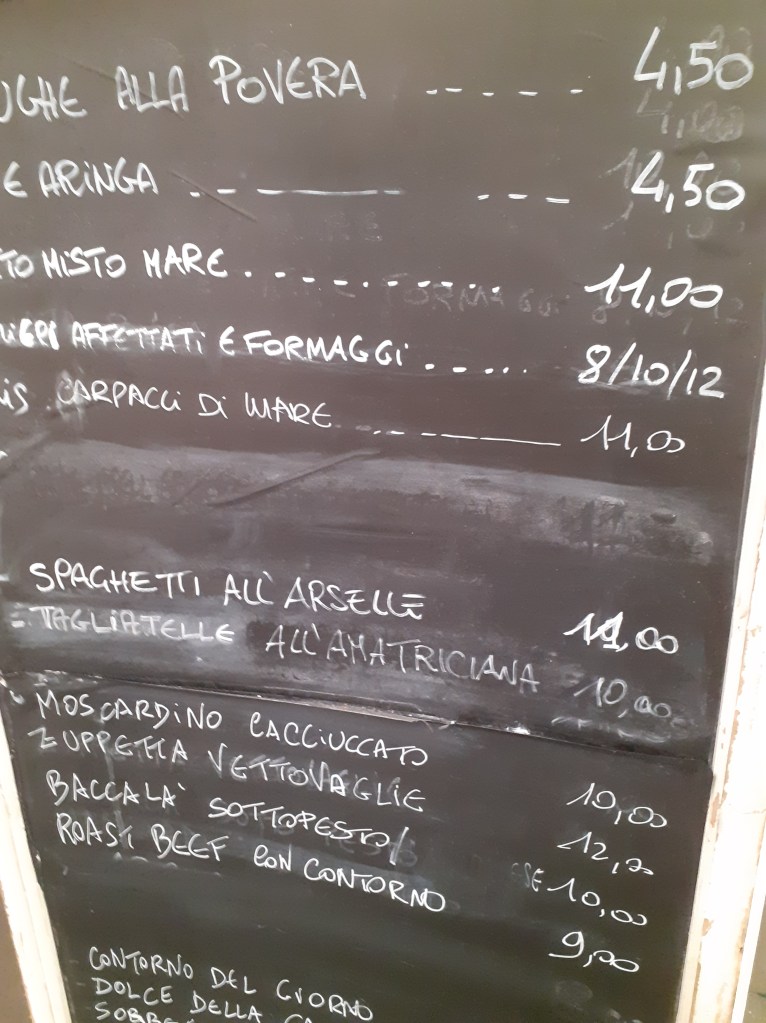 UGHE ALLA POVERA 4,50
E ARINGA 4,50
TO MISTO MARE 11,00
AFFETTATI E FORMAGGI 8/10/12
IS CARPACCI DI MARE 11,00
SPAGHETTI ALL'ARSELLE 11,00
TAGLIATELLE ALL'AMATRICIANA 10,00
MOSCARDINO CACCIUCCATO 10,00
ZUPPETTA VETTOVAGLIE 12,00
BACCALA' SOTTOPESTO/ 10,00
ROAST BEEF CON CONTORNO 9,00
CONTORNO DEL GIORNO
DOLCE DELLA